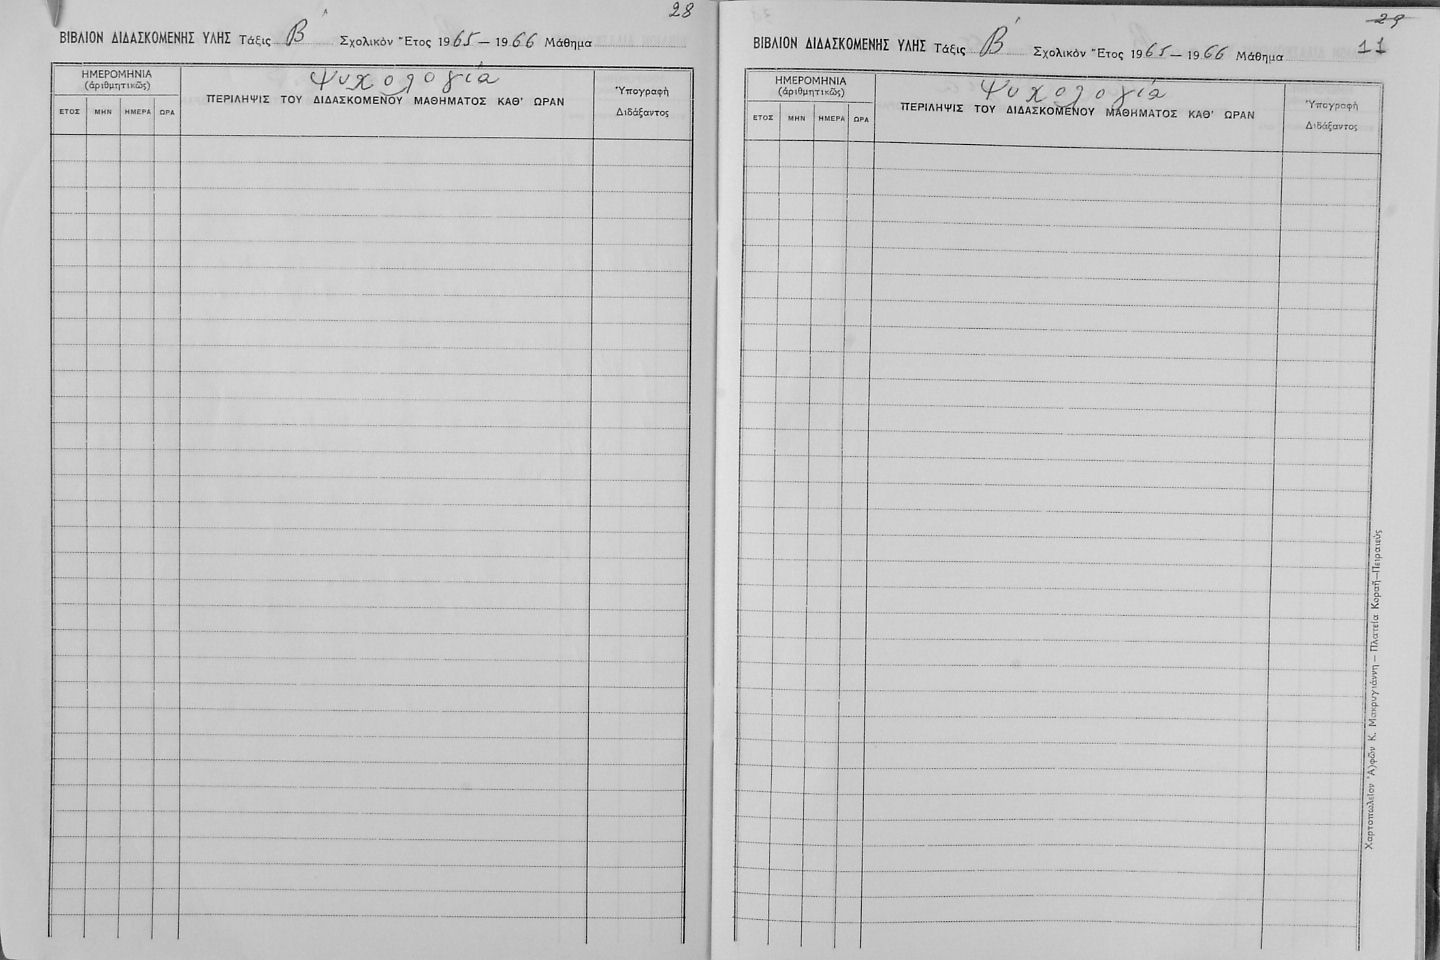 28
ΒΙΒΛΙΟΝ ΔΙΔΑΣΚΟΜΕΝΗΣ ΥΛΗΣ Τάξις Β΄ Σχολικὸν Ἔτος 1965 — 1966 Μάθημα
ΗΜΕΡΟΜΗΝΙΑ
(ἀριθμητικῶς)
Ψυχολογία
ΠΕΡΙΛΗΨΙΣ ΤΟΥ ΔΙΔΑΣΚΟΜΕΝΟΥ ΜΑΘΗΜΑΤΟΣ ΚΑΘ' ΩΡΑΝ
Ὑπογραφή
Διδάξαντος
ΕΤΟΣ ΜΗΝ ΗΜΕΡΑ ΩΡΑ
29
11
ΒΙΒΛΙΟΝ ΔΙΔΑΣΚΟΜΕΝΗΣ ΥΛΗΣ Τάξις Β΄ Σχολικὸν Ἔτος 1965 — 1966 Μάθημα
ΗΜΕΡΟΜΗΝΙΑ
(ἀριθμητικῶς)
Ψυχολογία
ΠΕΡΙΛΗΨΙΣ ΤΟΥ ΔΙΔΑΣΚΟΜΕΝΟΥ ΜΑΘΗΜΑΤΟΣ ΚΑΘ' ΩΡΑΝ
Ὑπογραφή
Διδάξαντος
ΕΤΟΣ ΜΗΝ ΗΜΕΡΑ ΩΡΑ
Χαρτοπωλεῖον Ἀ)φῶν Κ. Μακρυγιάννη — Πλατεῖα Κοραῆ—Πειραιεύς